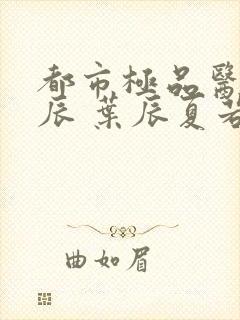 都市極品醫
辰 葉辰夏若
曲如眉